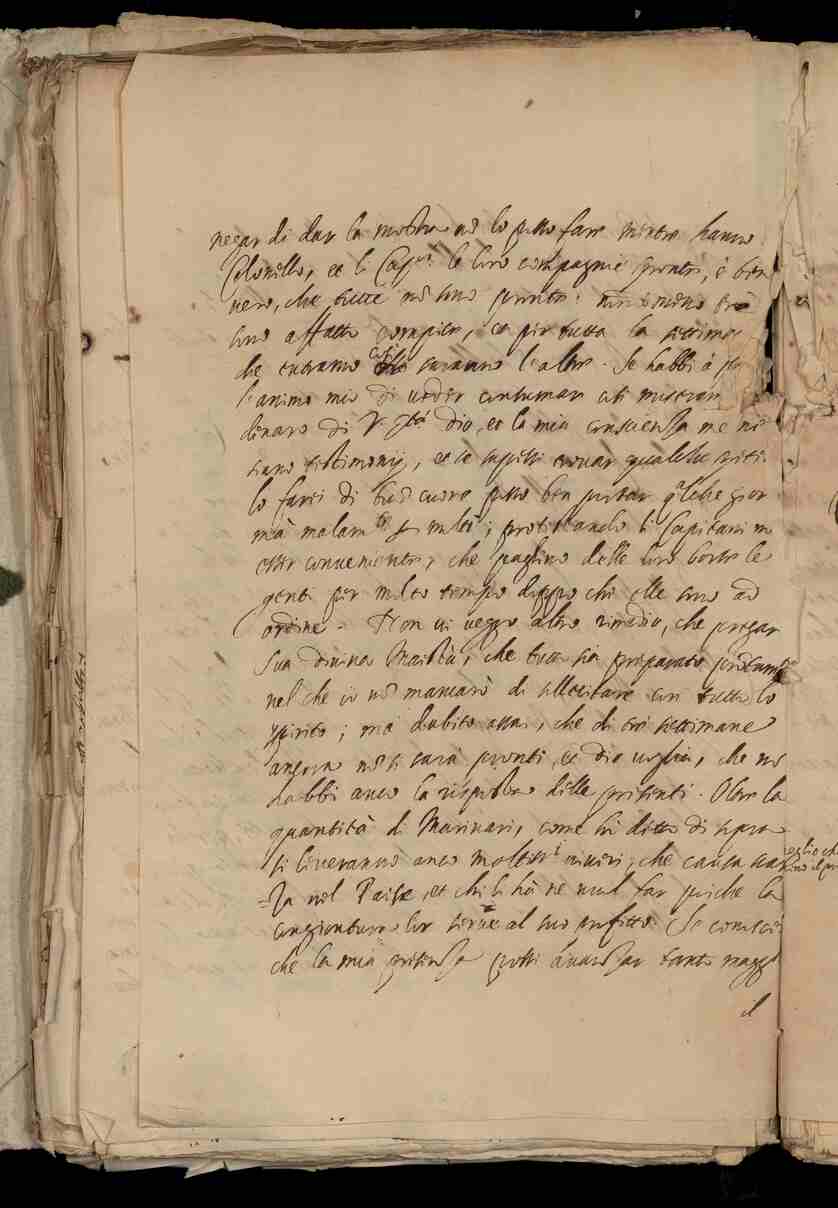 negar di dar la mostra nõ lo posso fare mentre hanno
Colonello, et li Cap.ni le loro compagnie pronte, è ben
vero, che tutte nõ sono pronte: nondimeno trè
sono affatto compite, et per tutta la settima
che entramo così saranno l'altre. Se habbi à
l'animo mio di veder consumar
denaro di V. Stà dio, et la mia conscienza me nè
siano testimonij, et se sapessi trovar qualche
lo farei di buõ cuore posso ben portar q̃lche gior
mà malam.te per molti; protestando li Capitani nõ
esser conveniente, che paghino delle loro borse le
genti per molto tempo doppo che elle sono ad
ordine. Non vi veggo altro rimedio, che pregar
Sua divina Maestà, che tutto sia preparato
nel che io nõ mancarò di sollecitare con tutto lo
spirito; mà dubito assai, che di trè settimane
ancora nõ si sarà pronti, et dio voglia, che nõ
habbi anco la risposta delle presenti. Oltre la
quantità di Marinari, come hò detto di sopra
si leveranno anco molti viveri, che causa
za nel Paese, et chi li hà ne vuol far poiche la
congiontura lor serve al suo profitto. Se conosce
che la mia presenza possi avanzar tanto
il